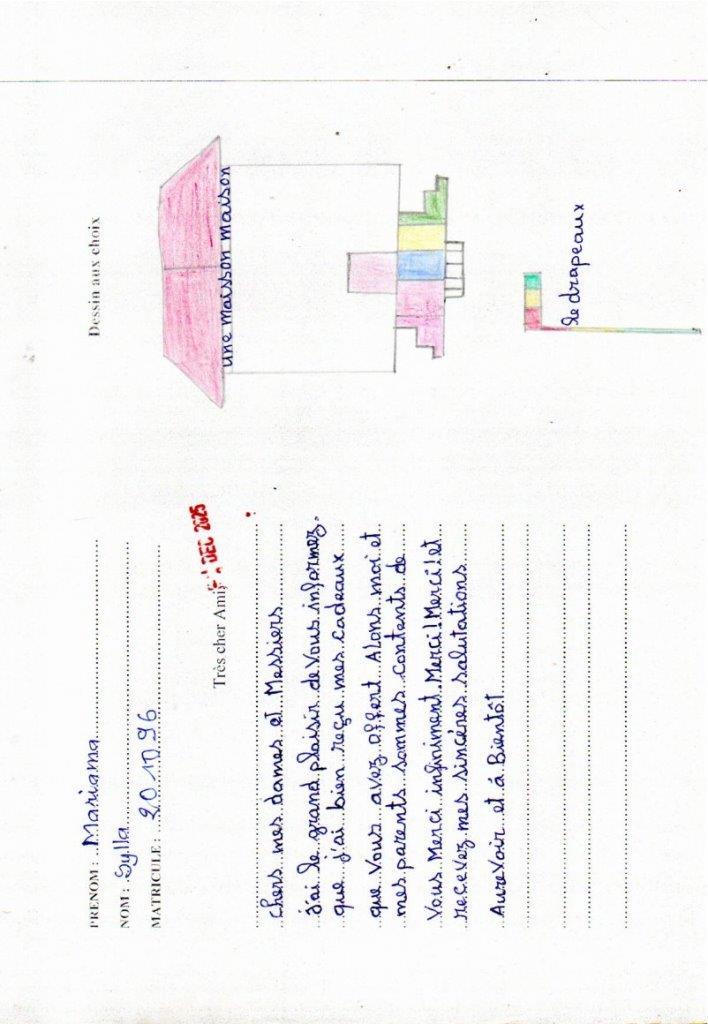 PRENOM : Mariama
NOM : Sylla
MATRICULE : 201096
Très cher Ami,
DEC 2025
chers mes dames et Messiers
j'ai le grand plaisir de Vous informez.
que j'ai bien reçu mes cadeaux
que Vous avez offert Alons moi et
mes parents sommes contents de
Vous Merci infiniment Merci! Merci! et
recevez mes sincéres salutations
AureVoir et á Bientôt
Dessin aux choix
une maisson maison
le drapeaux